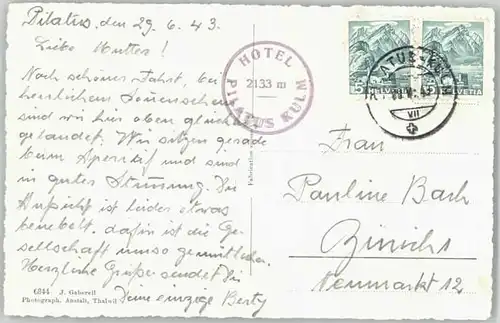 Pilatus, den 29.6.43.
Liebe Mutter!
Nach schöner Fahrt, bei
herrlichem Sonnenschein
sind wir hier oben glücklich
gelandet. Wir sitzen gerade
beim Aperitif und sind
in guter Stimmung. Die
Aussicht ist leider etwas
benebelt, dafür ist die Ge-
sellschaft umso gemütlicher.
Herzliche Grüsse sendet Dir
Deine einzige Berty
6844 J. Gaberell
Photograph. Anstalt, Thalwil
HOTEL
2133 m
PILATUS KULM
HELVETIA
PILATUS-KULM
VII
Frau
Pauline Bach
Zürich 1
Neumarkt 12